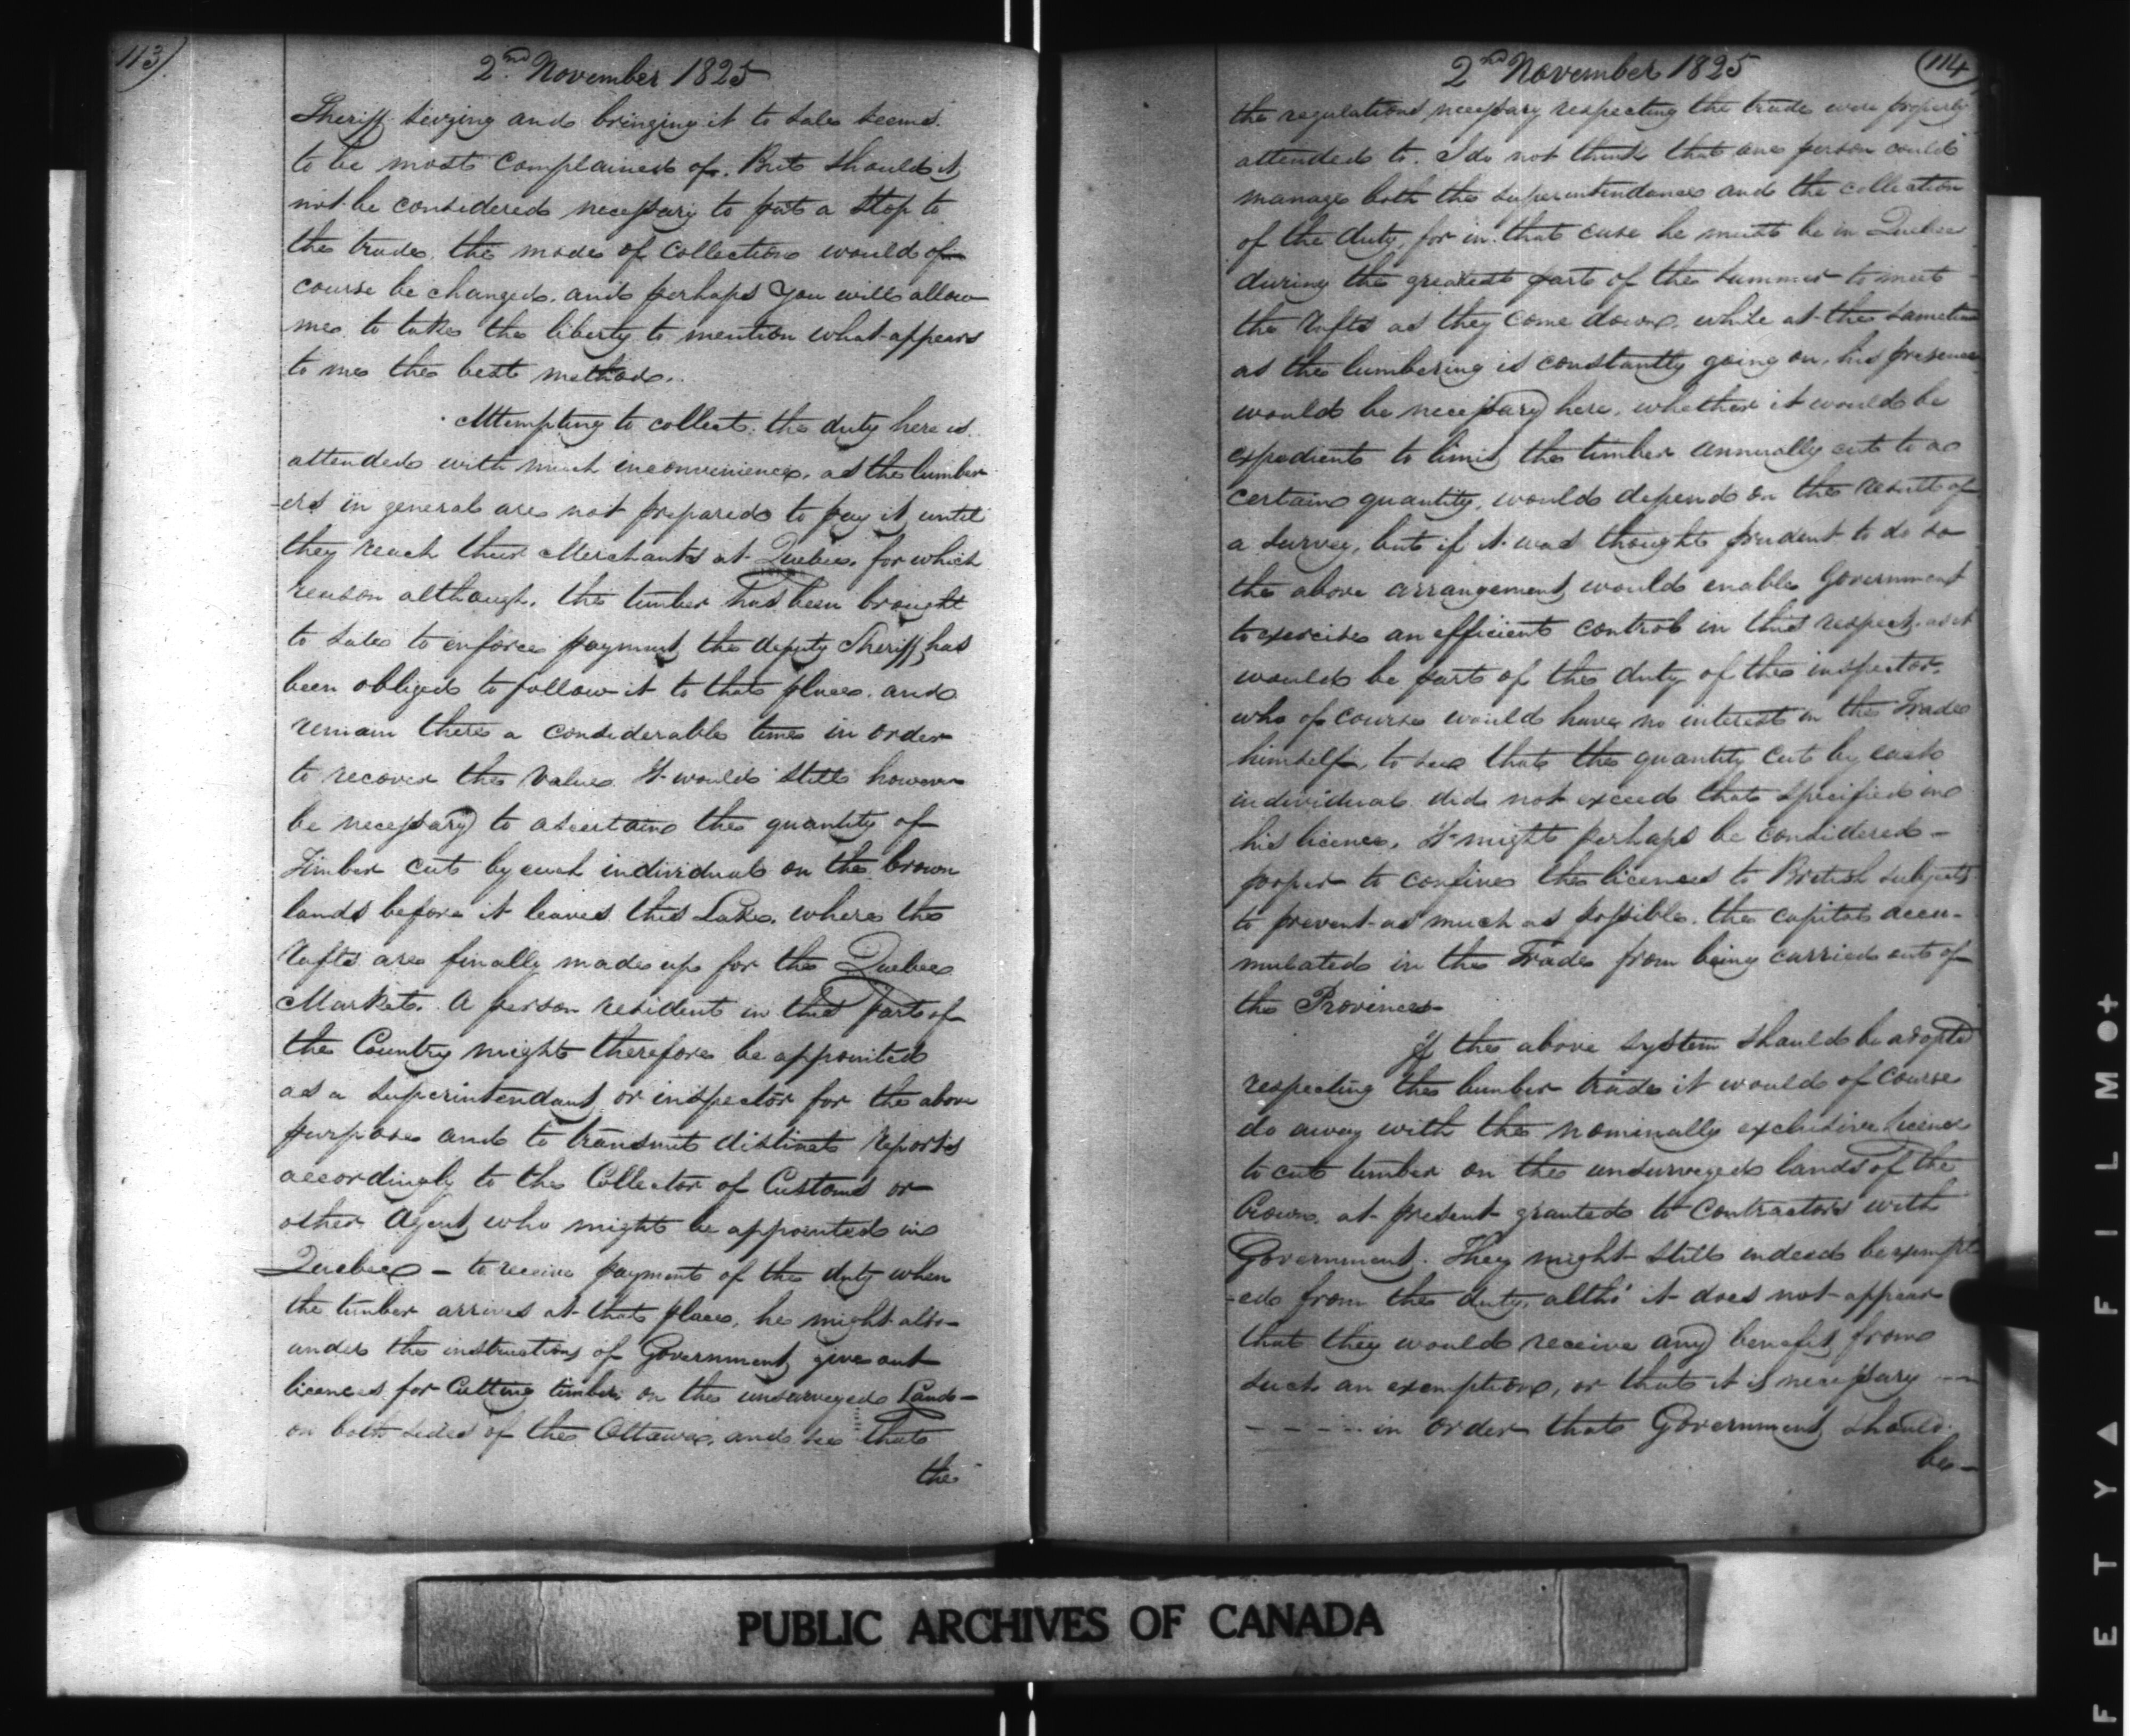 113)
2nd November 1825
Sheriff seizing and bringing it to sale seems
to be most complained of. But should it
not be considered necessary to put a stop to
the trade, the mode of collection would of
course be changed, and perhaps you will allow
me to take the liberty to mention what appears
to me the best method.
Attempting to collect the duty here is
attended with much inconvenience, as the lumber
-ers in general are not prepared to pay it until
they reach their Merchants at Quebec, for which
reason although, the timber has been brought
to sale to enforce payment, the deputy Sheriff has
been obliged to follow it to that place, and
remain there a considerable time in order
to recover the value. It would still however
be necessary to ascertain the quantity of
Timber cut by each individual on the Crown
lands before it leaves this Lake, where the
rafts are finally made up for the Quebec
Market. A person resident in this part of
the Country might therefore be appointed
as a superintendant or inspector for the above
purpose and to transmit distinct reports
accordingly to the Collector of Customs or
other Agent who might be appointed in
Quebec – to receive payment of the duty when
the timber arrives at that place, he might also
under the instructions of Government, give out
licences for Cutting timber on the unsurveyed Lands
on both sides of the Ottawa, and see that
the
2nd November 1825
(114)
the regulations necessary respecting the trade were properly
attended to. I do not think that one person could
manage both the superintendance and the collection
of the duty, for in that case he must be in Quebec
during the greatest part of the summer to meet
the rafts as they come down, while at the same time
as the lumbering is constantly going on, his presence
would be necessary here. whether it would be
expedient to limit the timber annually cut to a
certain quantity, would depend on the result of
a survey, but if it was thought prudent to do so
the above arrangement would enable Government
to exercise an efficient control in this respect, as it
would be part of the duty of the inspector,
who of course would have no interest in the Trade
himself, to see that the quantity cut by each
individual did not exceed that specified in
his licence. It might perhaps be considered –
proper to confine the licences to British subjects
to prevent as much as possible, the capital accu-
mulated in the Trade from being carried out of
the Province
If the above system should be adopted
respecting the lumber trade it would of course
do away with the nominally exclusive licence
to cut timber on the unsurveyed lands of the
Crown, at present granted to Contractors with
Government. They might still indeed be exempt
-ed from the duty, altho' it does not appear
that they would receive any benefit from
such an exemption, or that it is necessary – –
– – – – in order that Government should
be –
PUBLIC ARCHIVES OF CANADA
F E T Y ▲ F I L M ● +